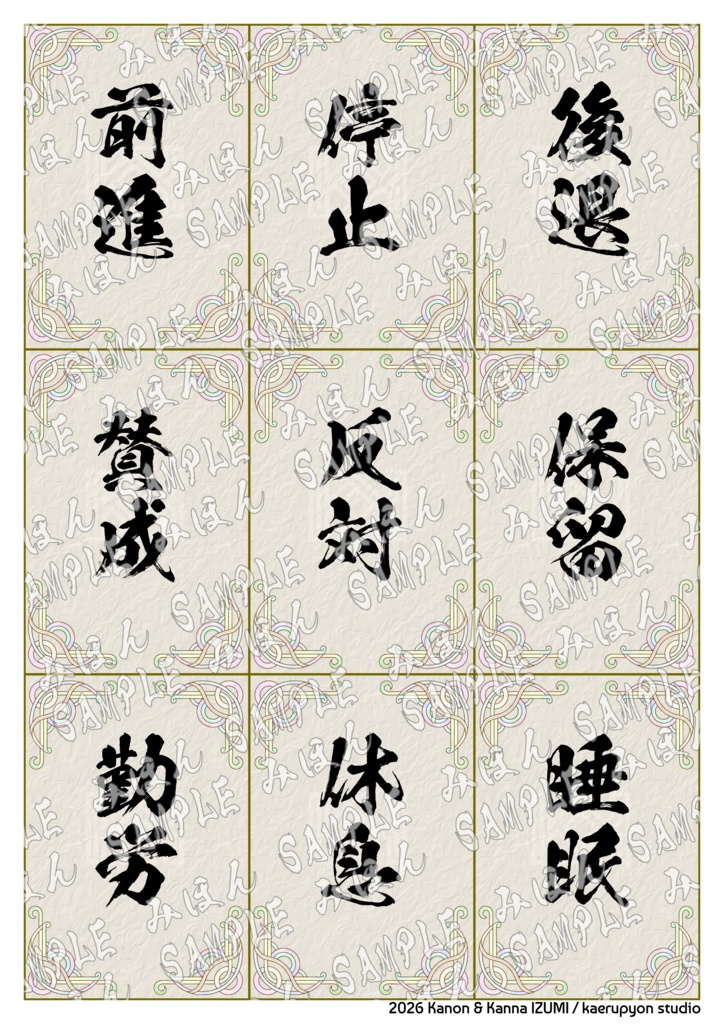 前進
停止
後退
賛成
反対
保留
勤労
休息
睡眠
みほん
SAMPLE
2026 Kanon & Kanna IZUMI / kaerupyon studio